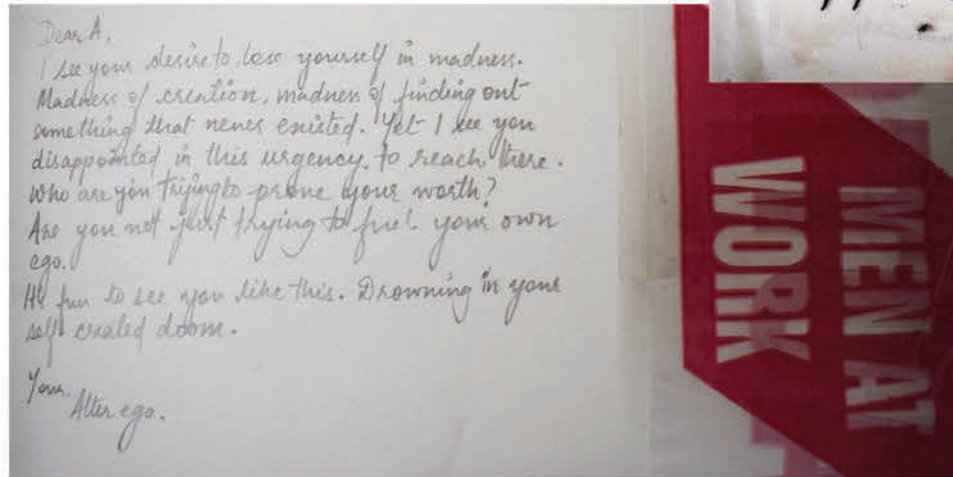 Dear A,
I see your desire to lose yourself in madness.
Madness of creation, madness of finding out
something that never existed. Yet I see you
disappointed in this urgency to reach there.
Who are you trying to prove your worth?
Are you not just trying to fuel your own
ego.
It's fun to see you like this. Drowning in your
self created doom.
Your.
Alter ego.
MEN AT
WORK